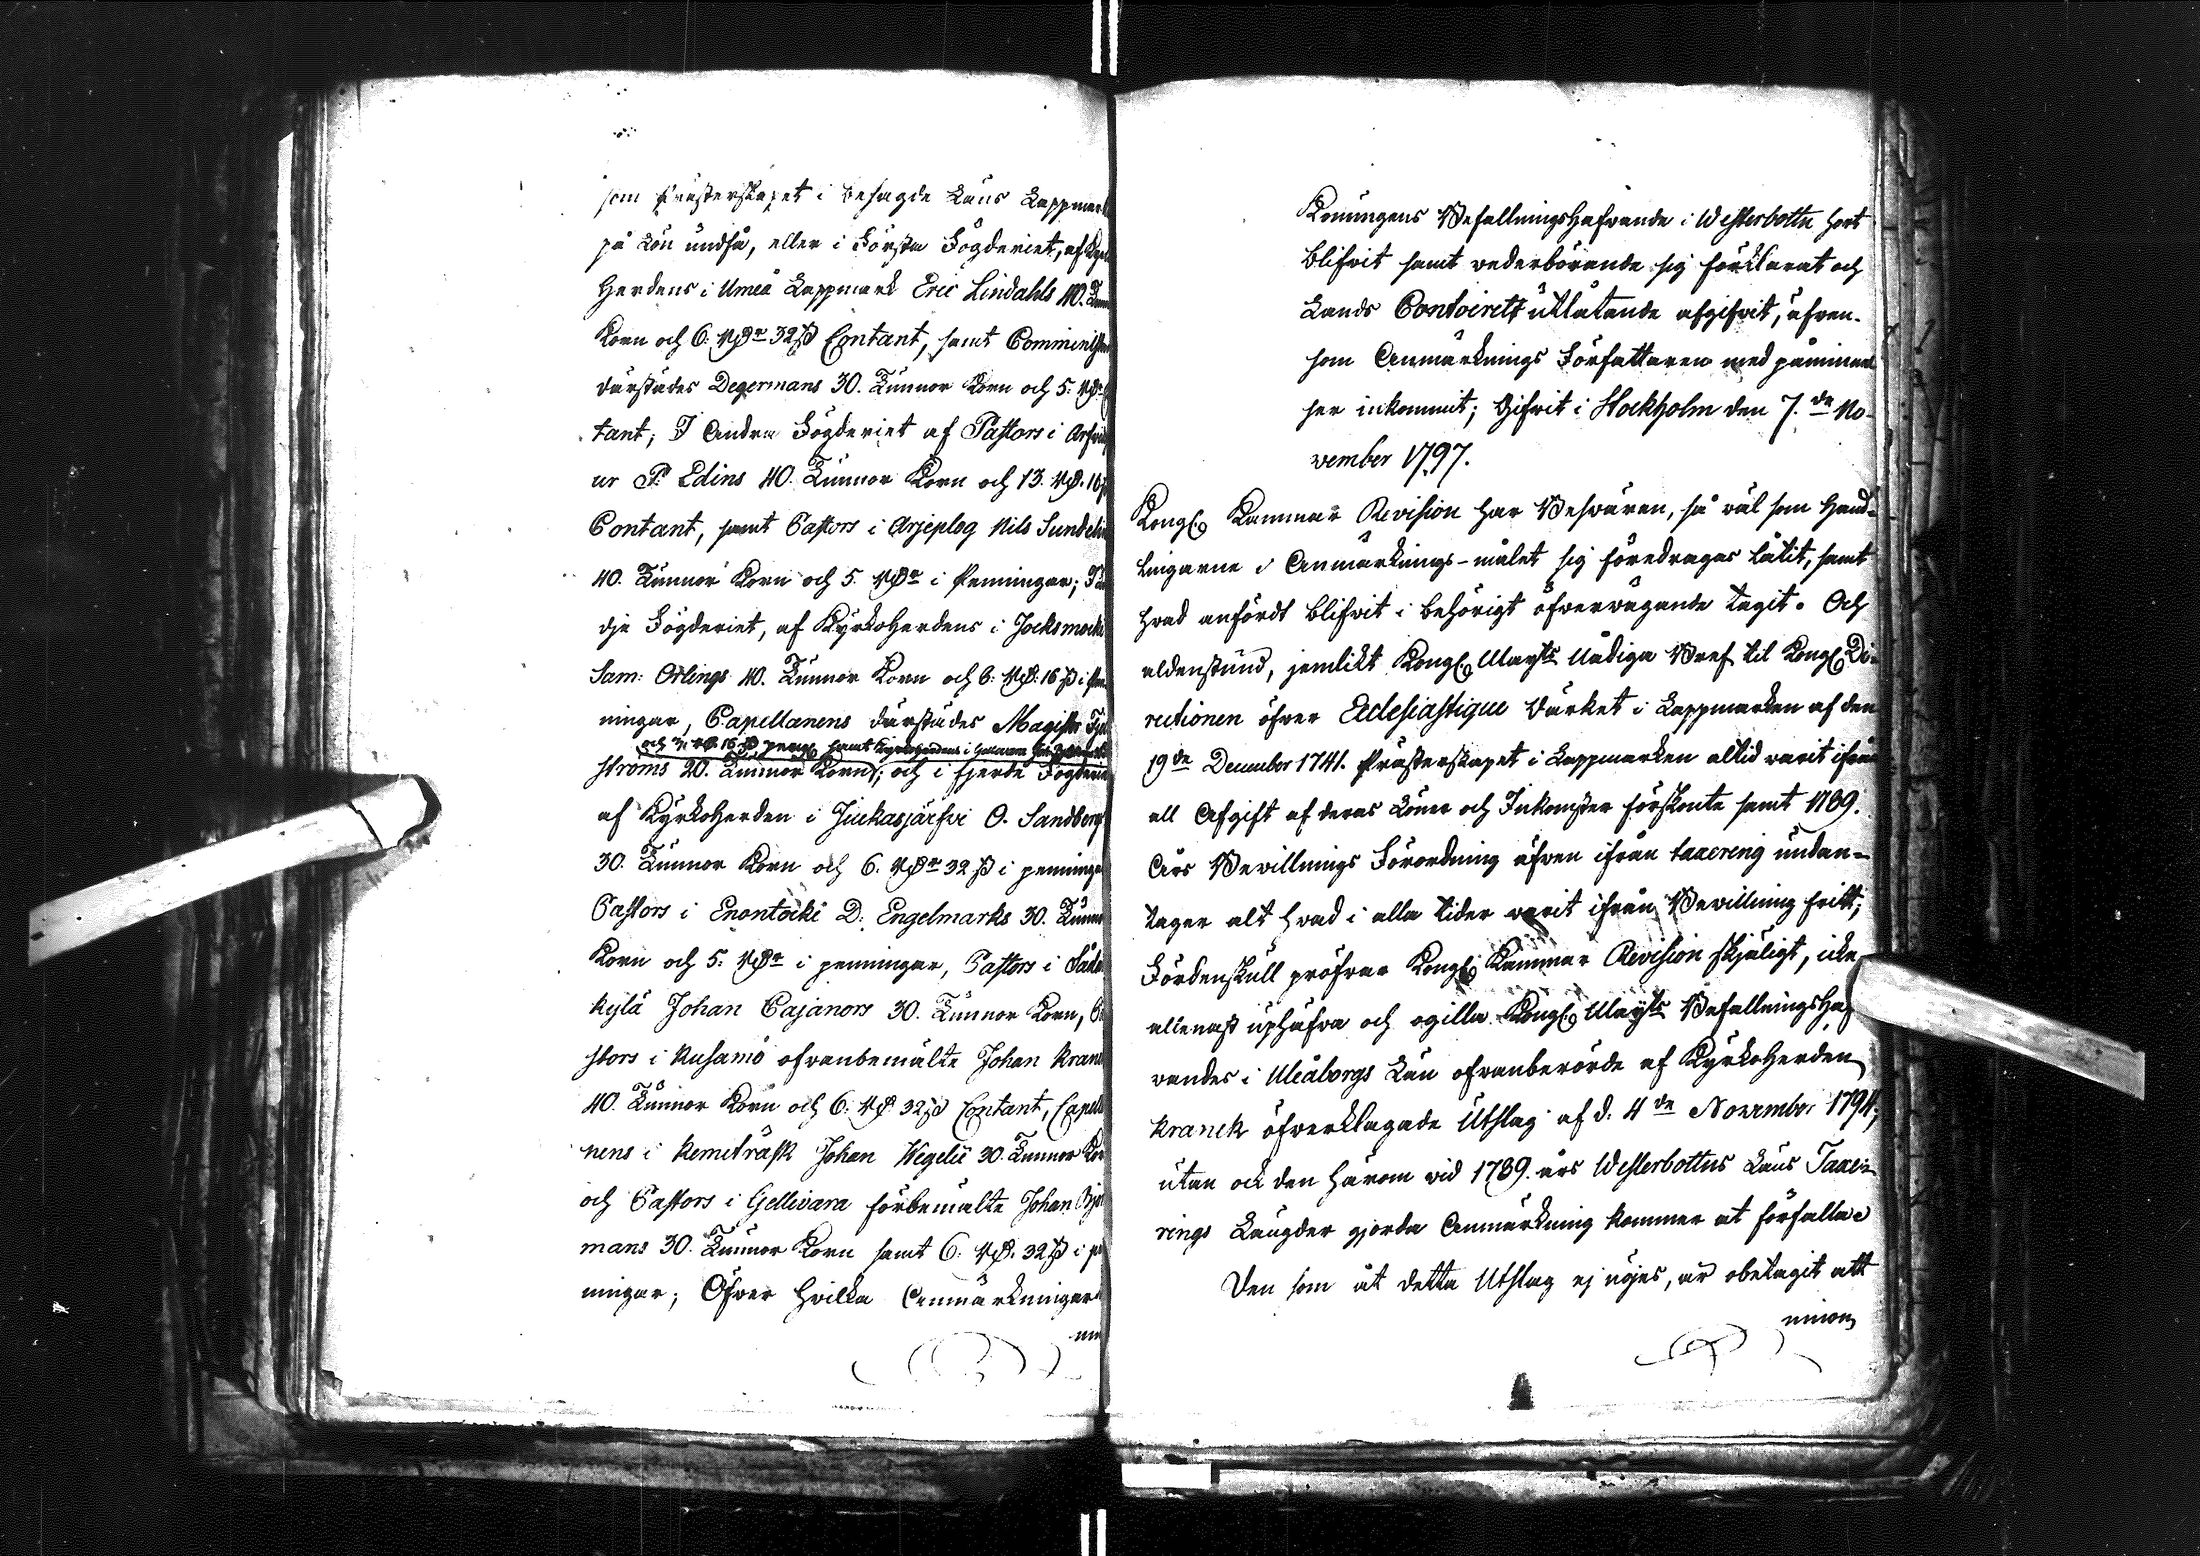 som Prästerskapet i besagde Läns Lappmark
på Lön undfå, eller i Första Fögderiet, af Kyrko
Herdens i Umeå Lappmark Eric Lindahls 40. Tunn
Korn och 6. Rdr 32 s Contant, samt Comminist
därstädes Degermans 30. Tunnor Korn och 5. Rdr
tant; I Andra Fögderiet af Pastors i Arfwid
ur P. Edins 40. Tunnor Korn och 13. Rd. 16
Contant, samt Pastors i Arjeplog Nils Sundelin
40. Tunnor Korn och 5. Rdr i Penningar; Tre
dje Fögderiet, af KyrkoHerdens i Jockmocks
Sam: Örlings 40. Tunnor Korn och 6. Rd. 16 s i Pen
ningar, Capellanens därstädes Magister
och 3. Rd. 16 s peng samt Kyrkoherdens i
ströms 20. Tunnor Korn; och i fjerde Fögderi
af KyrkoHerden i Juckasjärfvi O. Sandberg
30. Tunnor Korn och 6. Rdr 32 s i penninga
Pastors i Enontecki D. Engelmarks 30. Tunn
Korn och 5. Rdr i penningar, Pastors i Soda
kylä Johan Cajanors 30. Tunnor Korn, Pa
stors i Kusamo ofvanbemälte Johan Krane
40. Tunnor Korn och 6. Rd 32 s Contant, Capella
nens i Kemiträsk Johan Wegelii 30. Tunnor Kor
och Pastors i Gellivara förbemälte Johan Björ
mans 30. Tunnor Korn samt 6. Rd. 32 s i pe
ningar; Öfver hvilka Anmärkningar
Konungens Befallningshafvande i Westerbotten hört
blifvit samt vederbörande sig förklarat och
Lands Contoiret utlåtande afgifvit, äfven-
som Anmärknings Författaren med påminnel
ser inkommit; Gifvit i Stockholm den 7.de No-
vember 1797.
Kongl. Kammar Revision har Besvären, så väl som Hand-
lingarne i Anmärknings-målet sig föredragas låtit, samt
hvad anfördt blifvit i behörigt öfvervägande tagit. Och
aldenstund, jemlikt Kongl. Mayts Nådiga Bref til Kongl. Di-
rectionen öfver Ecclesiastique Värket i Lappmarken af den
19de December 1741. Prästerskapet i Lappmarken altid varit ifrån
all Afgift af deras Löner och Inkomster förskonte samt 1789.
Års Bevillnings Förordning äfven ifrån taxering undan-
tager alt hvad i alla tider varit ifrån Bevillning fritt;
Fördenskull pröfvar Kongl. Kammar Revision skjäligt, icke
allenast uphäfva och ogilla Kongl. Mayts BefallningsHaf
vandes i Uleåborgs Län ofvanberörde af KyrkoHerden
Kranck öfverklagade Utslag af d. 4de November 1794;
utan ock den härom vid 1789. års Westerbottns Läns Taxe-
rings Längder gjorda Anmärkning kommer at förfalla
Den som åt detta Utslag ej nöjes, är obetagit att